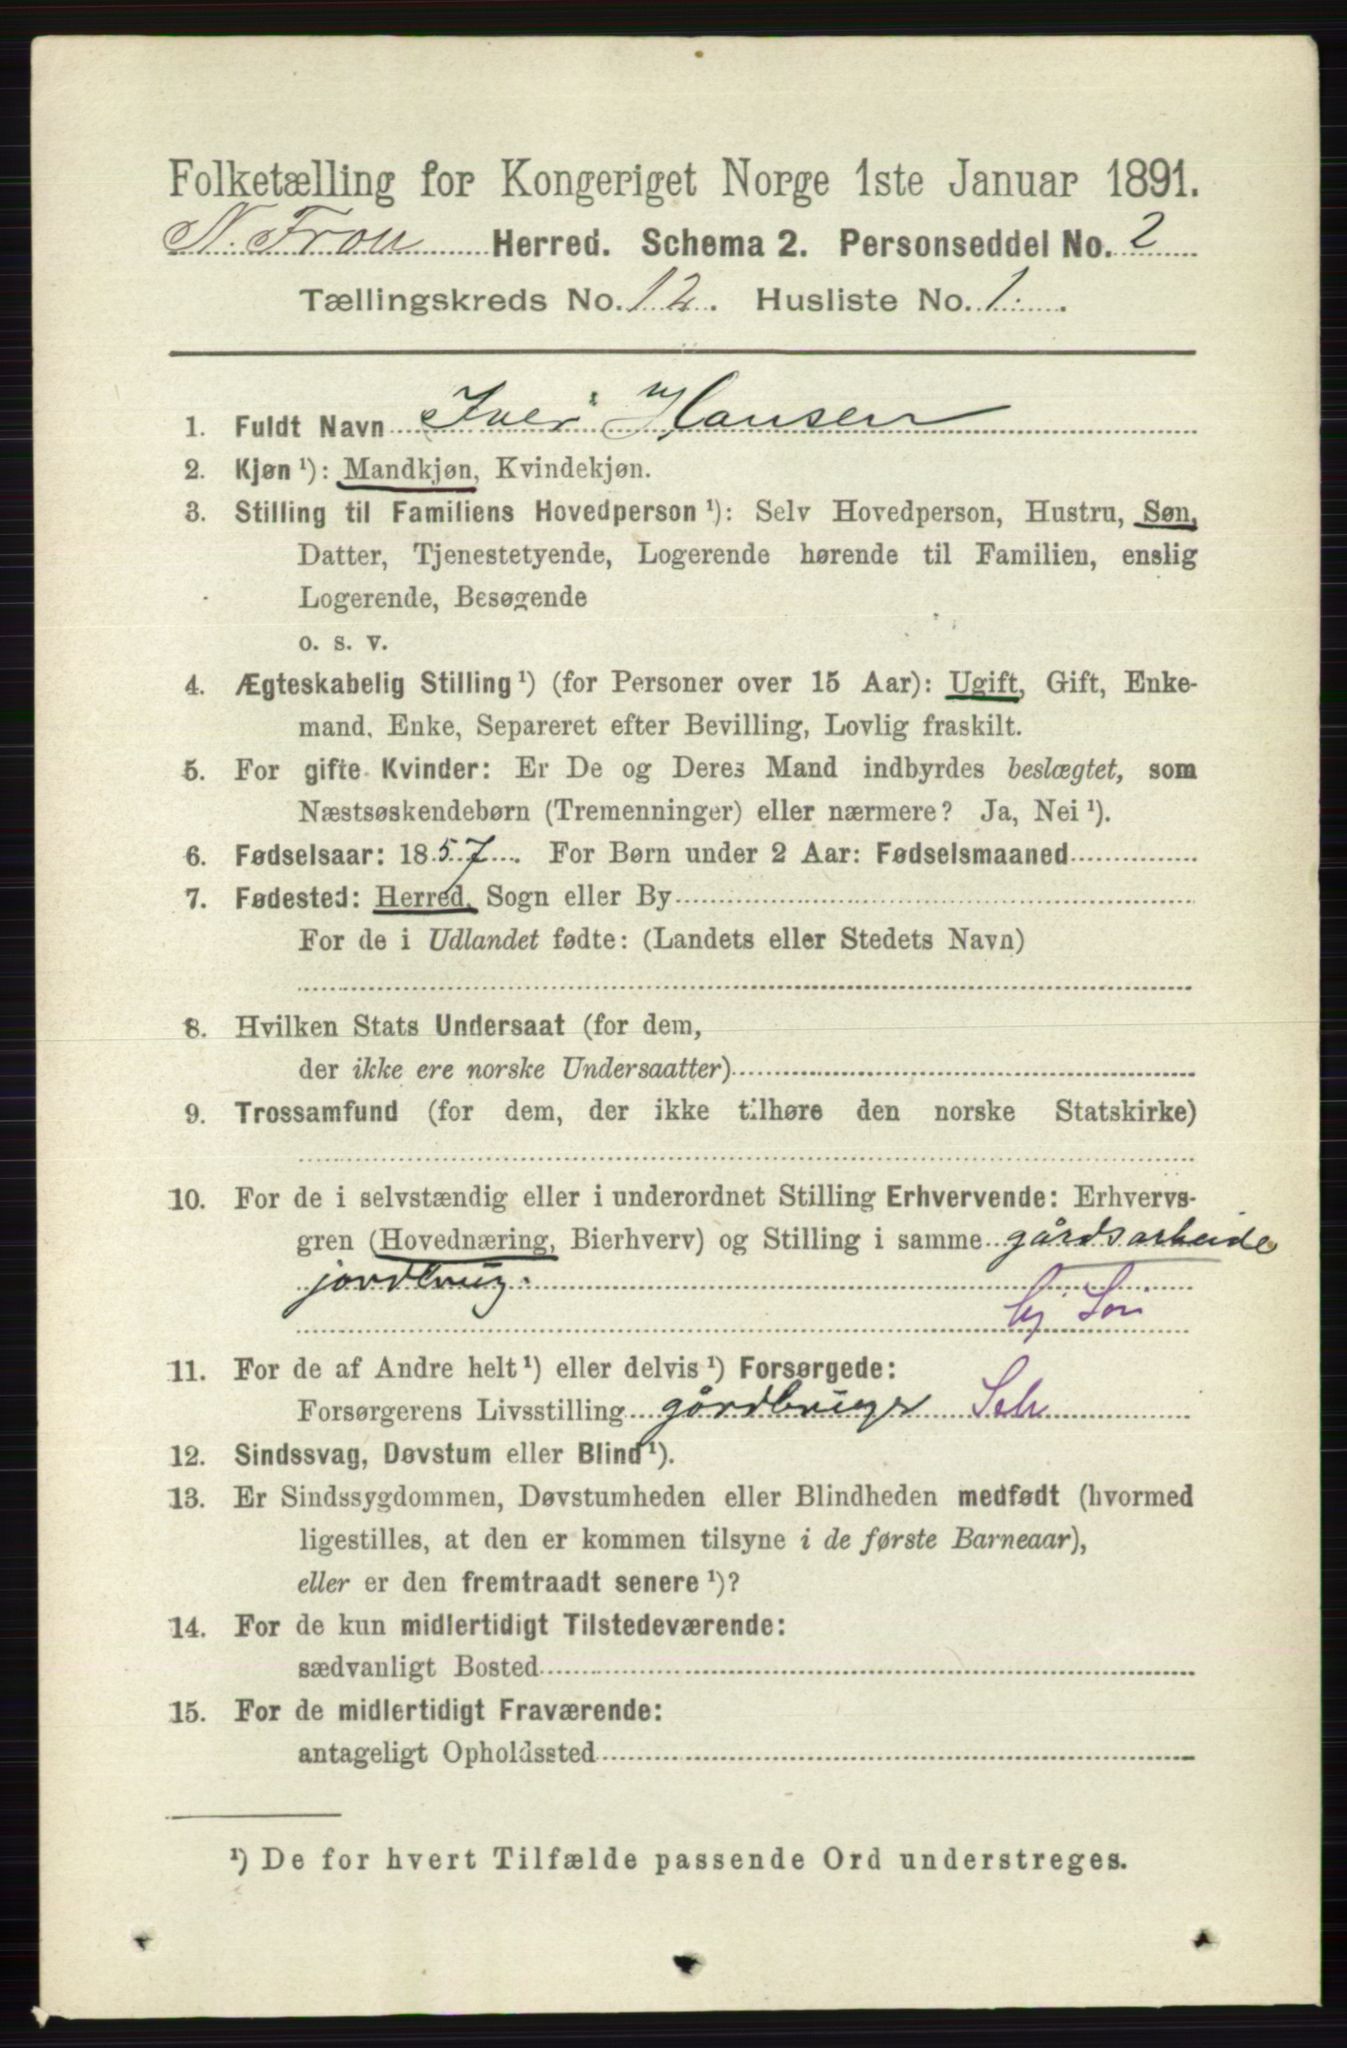 Folketælling for Kongeriget Norge 1ste Januar 1891.
N. Fron Herred. Schema 2. Personseddel No. 2
Tællingskreds No. 12. Husliste No. 1.
1. Fuldt Navn Iver Hansen
2. Kjøn ¹): Mandkjøn, Kvindekjøn.
3. Stilling til Familiens Hovedperson ¹): Selv Hovedperson, Hustru, Søn,
Datter, Tjenestetyende, Logerende hørende til Familien, enslig
Logerende, Besøgende
o. s. v.
4. Ægteskabelig Stilling ¹) (for Personer over 15 Aar): Ugift, Gift, Enke-
mand, Enke, Separeret efter Bevilling, Lovlig fraskilt.
5. For gifte Kvinder: Er De og Deres Mand indbyrdes beslægtet, som
Næstsøskendebørn (Tremenninger) eller nærmere? Ja, Nei ¹).
6. Fødselsaar: 1857. For Børn under 2 Aar: Fødselsmaaned
7. Fødested: Herred, Sogn eller By
For de i Udlandet fødte: (Landets eller Stedets Navn)
8. Hvilken Stats Undersaat (for dem,
der ikke ere norske Undersaatter)
9. Trossamfund (for dem, der ikke tilhøre den norske Statskirke)
10. For de i selvstændig eller i underordnet Stilling Erhvervende: Erhvervs-
gren (Hovednæring, Bierhverv) og Stilling i samme gårdsarbeide
jordbrug.
Gj Søn
11. For de af Andre helt ¹) eller delvis ¹) Forsørgede:
Forsørgerens Livsstilling gårdbruger Selv
12. Sindssvag, Døvstum eller Blind ¹).
13. Er Sindssygdommen, Døvstumheden eller Blindheden medfødt (hvormed
ligestilles, at den er kommen tilsyne i de første Barneaar),
eller er den fremtraadt senere ¹)?
14. For de kun midlertidigt Tilstedeværende:
sædvanligt Bosted
15. For de midlertidigt Fraværende:
antageligt Opholdssted
¹) De for hvert Tilfælde passende Ord understreges.